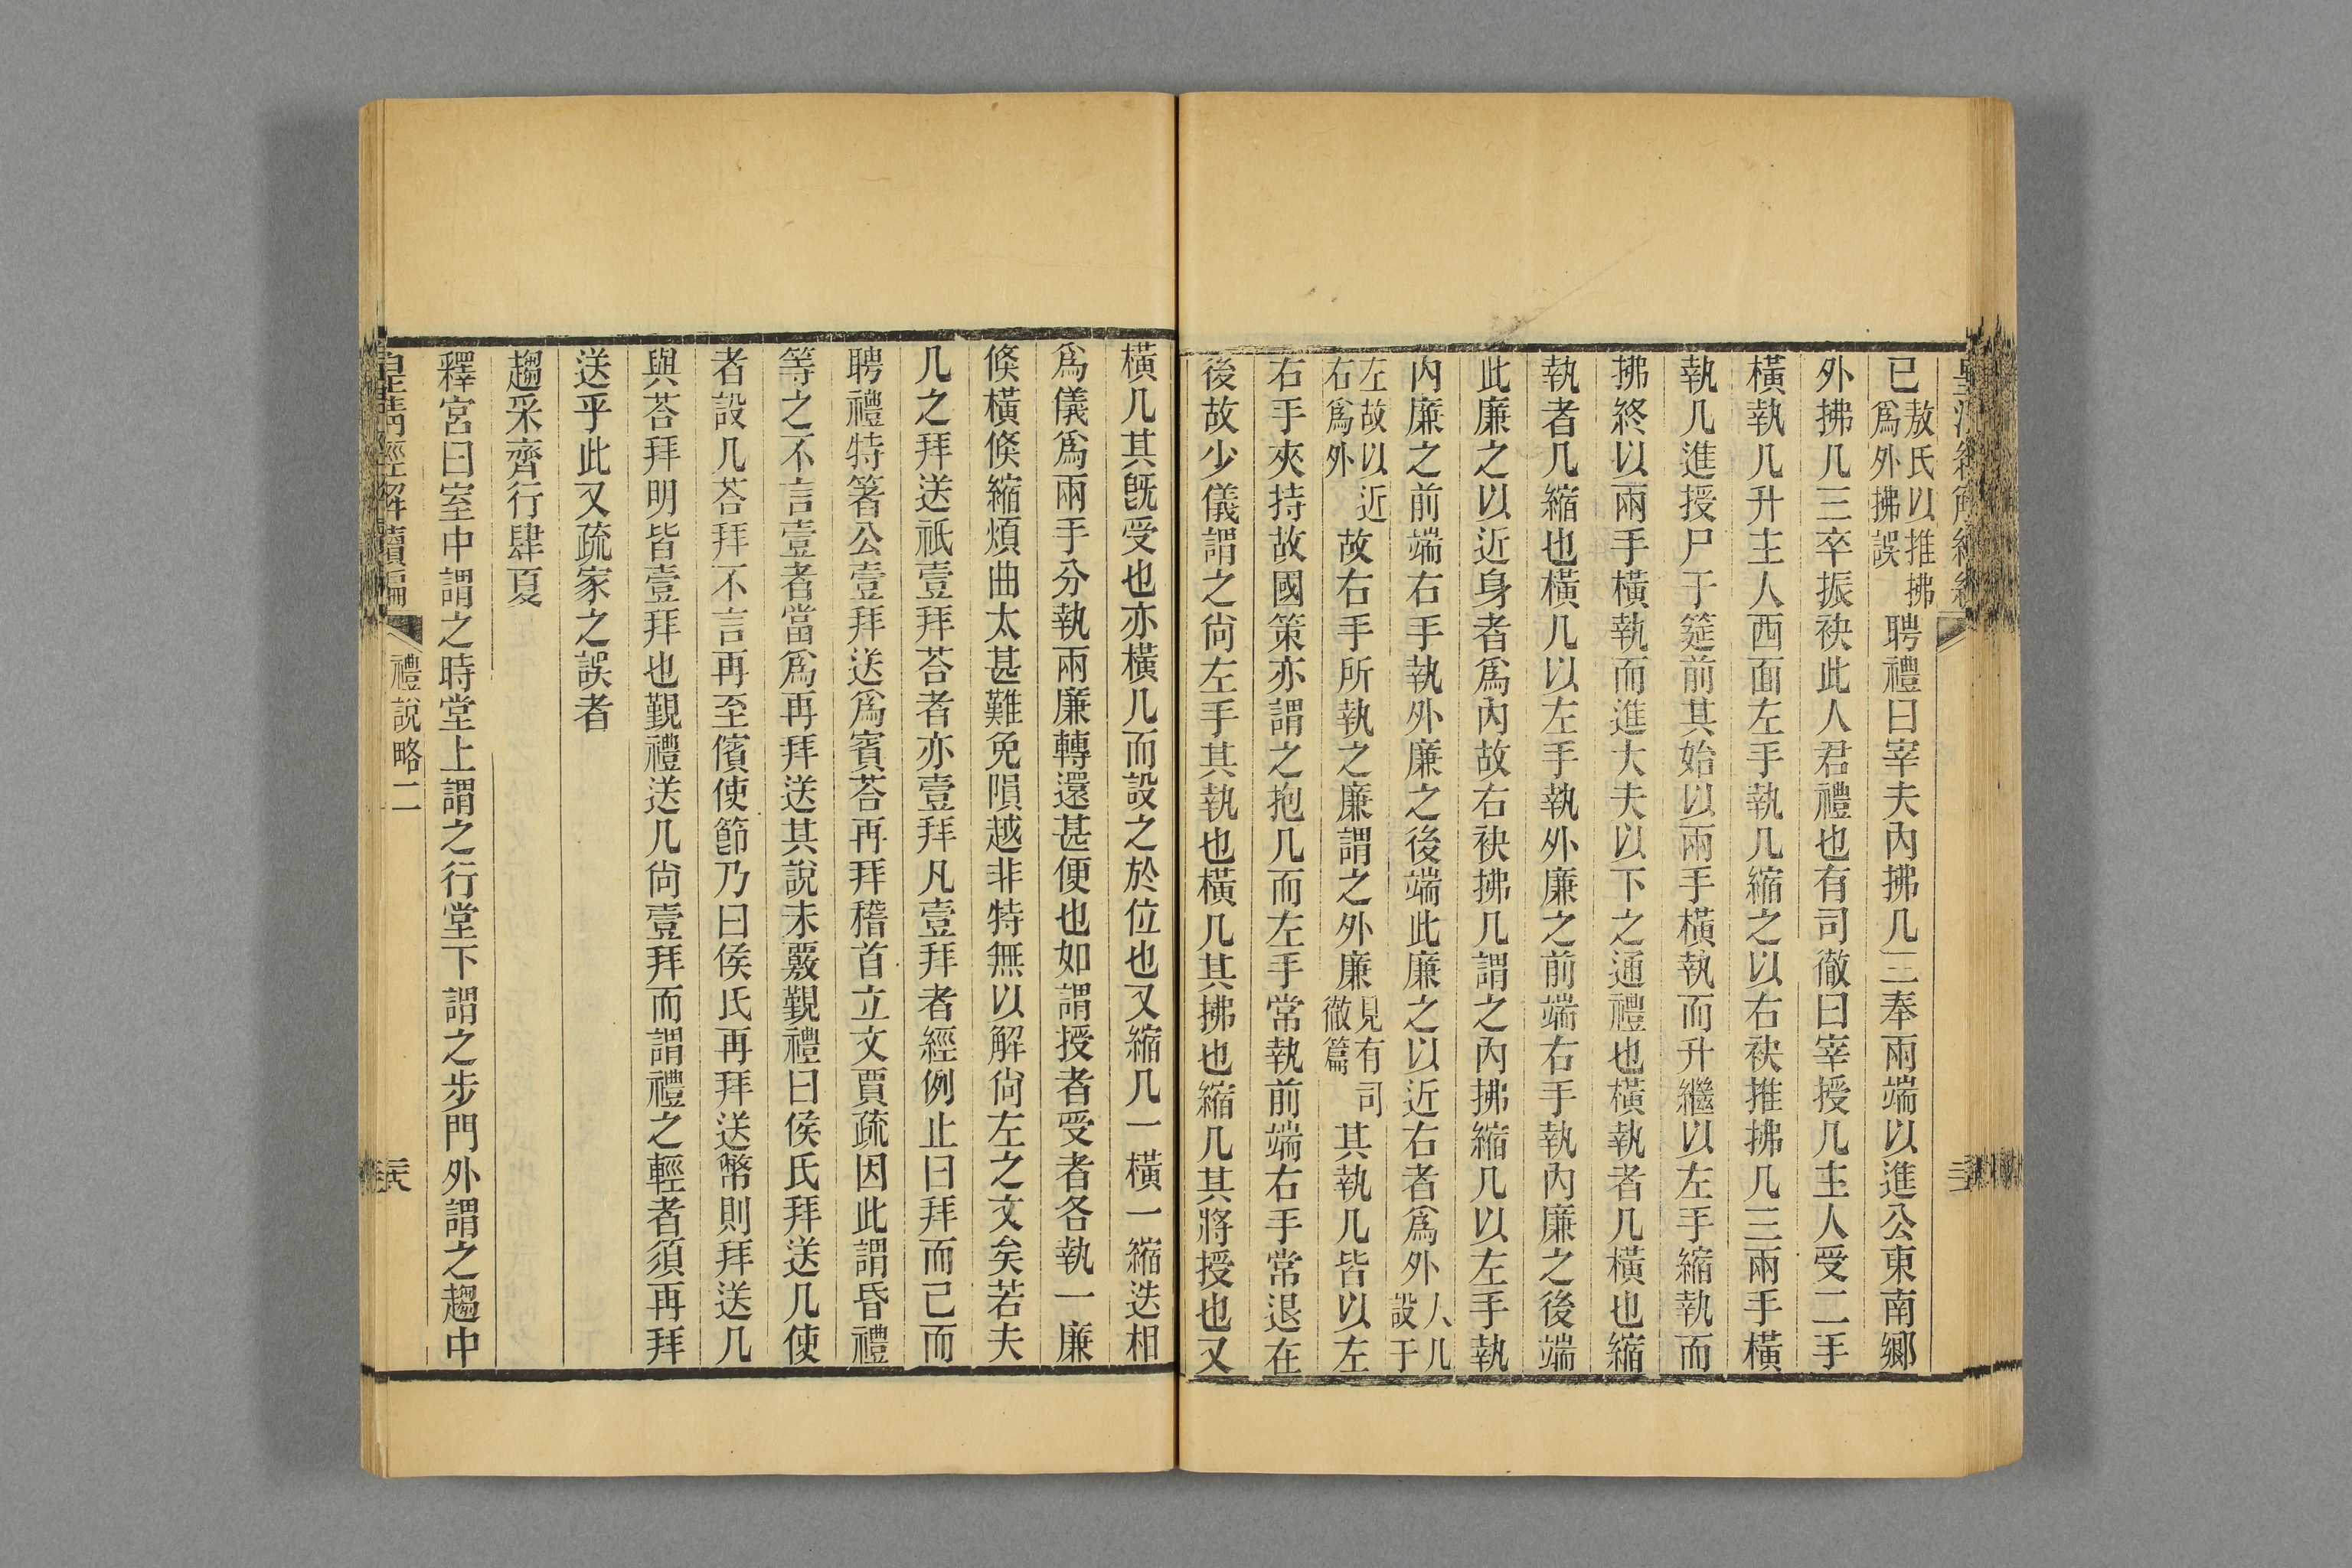 已敖氏以推拂爲外拂誤聘禮曰宰夫內拂几三奉兩端以進公東南鄉
外拂几三卒振袂此人君禮也有司徹曰宰授几主人受二手
橫執几升主人西面左手執几縮之以右袂推拂几三兩手橫
執几進授尸于筵前其始以兩手橫執而升繼以左手縮執而
拂終以兩手橫執而進大夫以下之通禮也橫執者几橫也縮
執者几縮也橫几以左手執外廉之前端右手執內廉之後端
此廉之以近身者爲內故右袂拂几謂之內拂縮几以左手執
內廉之前端右手執外廉之後端此廉之以近右者爲外人几設于
左故以近右爲外故右手所執之廉謂之外廉見有司徹篇其執几皆以左
右手夾持故國策亦謂之抱几而左手常執前端右手常退在
後故少儀謂之尙左手其執也橫几其拂也縮几其將授也又
橫几其旣受也亦橫几而設之於位也又縮几一橫一縮迭相
爲儀爲兩手分執兩廉轉還甚便也如謂授者受者各執一廉
倏橫倏縮煩曲太甚難免隕越非特無以解尙左之文矣若夫
几之拜送祇壹拜荅者亦壹拜凡壹拜者經例止曰拜而已而
聘禮特箸公壹拜送爲賓荅再拜稽首立文賈疏因此謂昏禮
等之不言壹者當爲再拜送其說未覈覲禮曰侯氏拜送几使
者設几荅拜不言再至儐使節乃曰侯氏再拜送幣則拜送几
與荅拜明皆壹拜也覲禮送几尙壹拜而謂禮之輕者須再拜
送乎此又疏家之誤者
趨采齊行肆夏
釋宮曰室中謂之時堂上謂之行堂下謂之步門外謂之趨中
皇淸經解續編
禮說略二